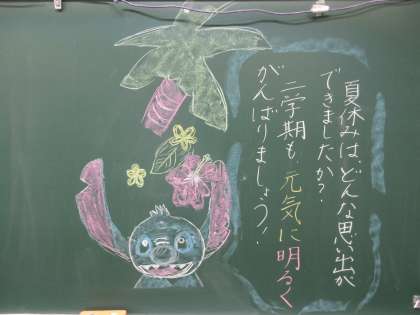 夏休みは、どんな思い出が
できましたか?
二学期も、元気に明るく
がんばりましょう!